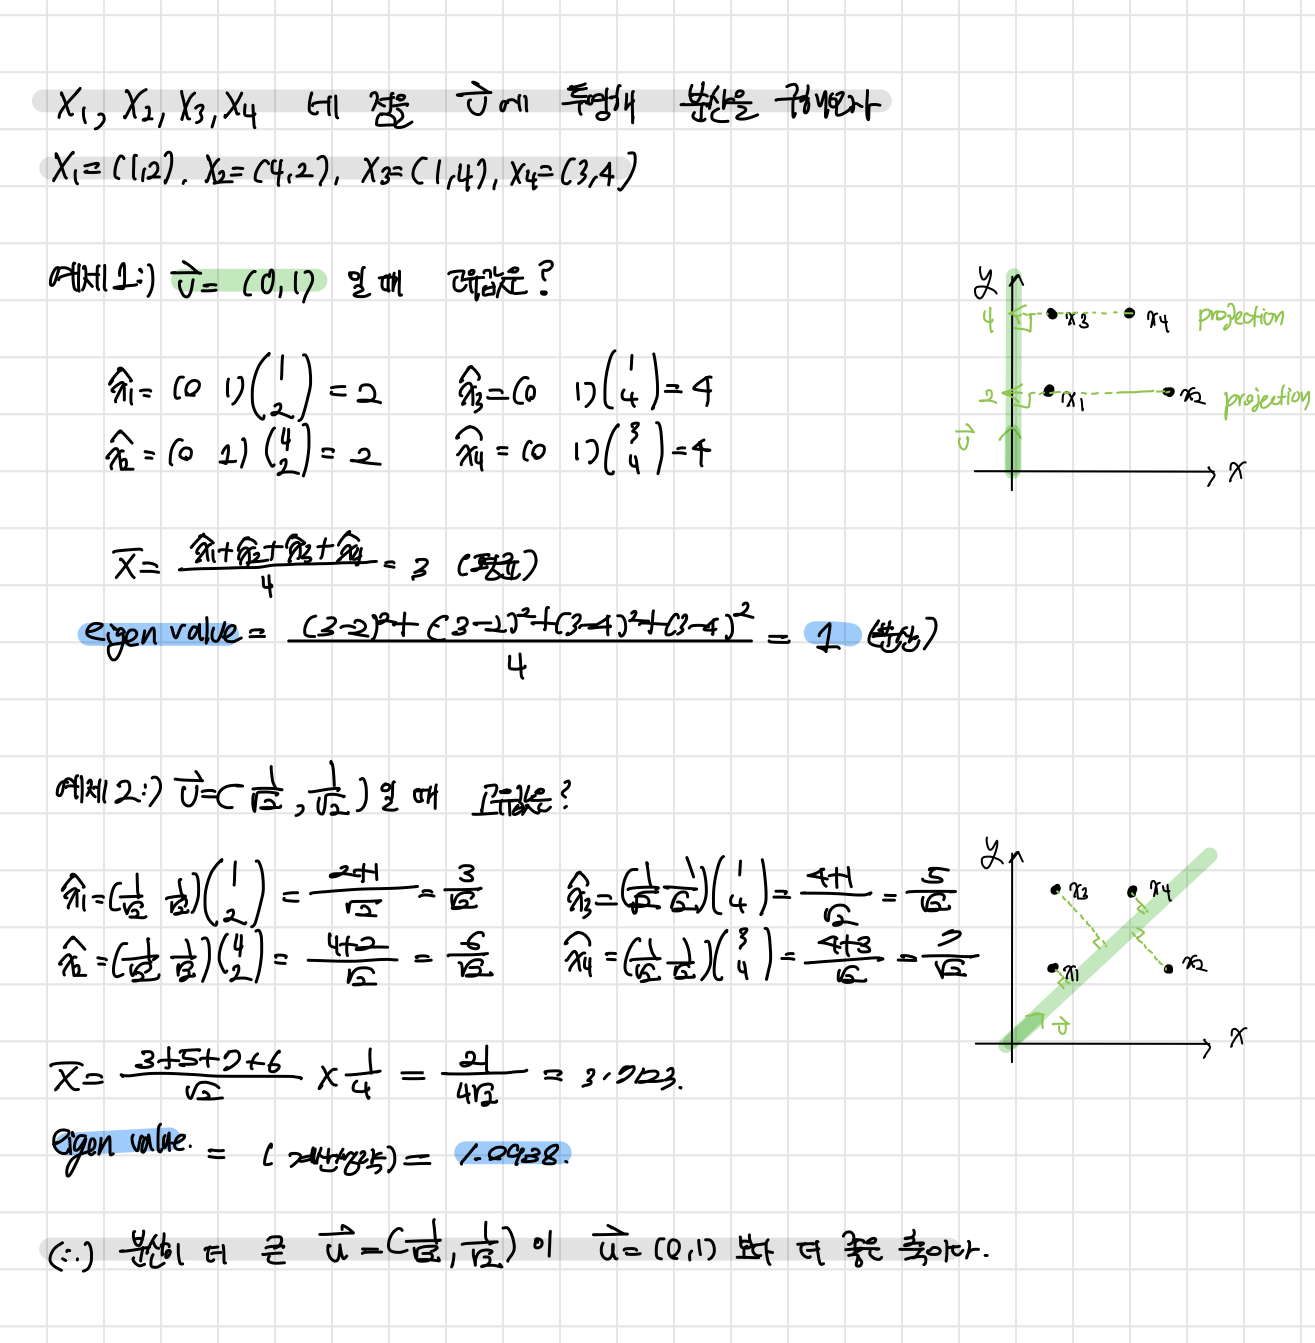 X₁, X₂, X₃, X₄ 네 점을 U⃗에 투영해 분산을 구해보자
X₁=(1,2), X₂=(4,2), X₃=(1,4), X₄=(3,4)
예제1:) U⃗=(0,1) 일 때 고유값은?
x̂₁=(0 1)(1 2)=2 x̂₃=(0 1)(1 4)=4
x̂₂=(0 1)(4 2)=2 x̂₄=(0 1)(3 4)=4
X̄=(x̂₁+x̂₂+x̂₃+x̂₄)/4=3 (평균)
eigen value=((3-2)²+(3-2)²+(3-4)²+(3-4)²)/4=1 (분산)
y
4 x₃ x₄ projection
2 x₁ x₂ projection
U⃗
x
예제2:) U⃗=(1/√2, 1/√2) 일 때 고유값은?
x̂₁=(1/√2 1/√2)(1 2)=(2+1)/√2=3/√2 x̂₃=(1/√2 1/√2)(1 4)=(4+1)/√2=5/√2
x̂₂=(1/√2 1/√2)(4 2)=(4+2)/√2=6/√2 x̂₄=(1/√2 1/√2)(3 4)=(4+3)/√2=7/√2
X̄=(3+5+7+6)/√2×1/4=21/4√2=3.7123.
eigen value.=(계산생략)=1.0938.
y
x₃ x₄
x₁ x₂
U⃗
x
(∴) 분산이 더 큰 u⃗=(1/√2, 1/√2)이 u⃗=(0,1) 보다 더 좋은 축이다.